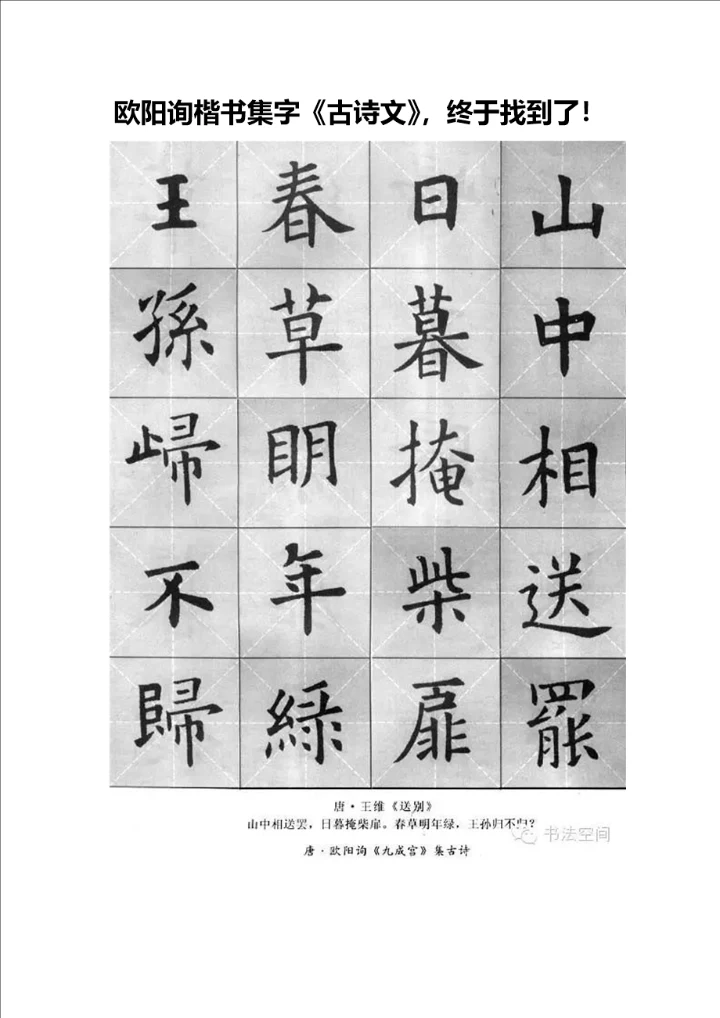 欧阳询楷书集字《古诗文》，终于找到了！
山中相送罷
日暮掩柴扉
春草明年緑
王孫歸不歸
唐·王维《送别》
山中相送罢，日暮掩柴扉。春草明年绿，王孙归不归？
书法空间
唐·欧阳询《九成宫》集古诗